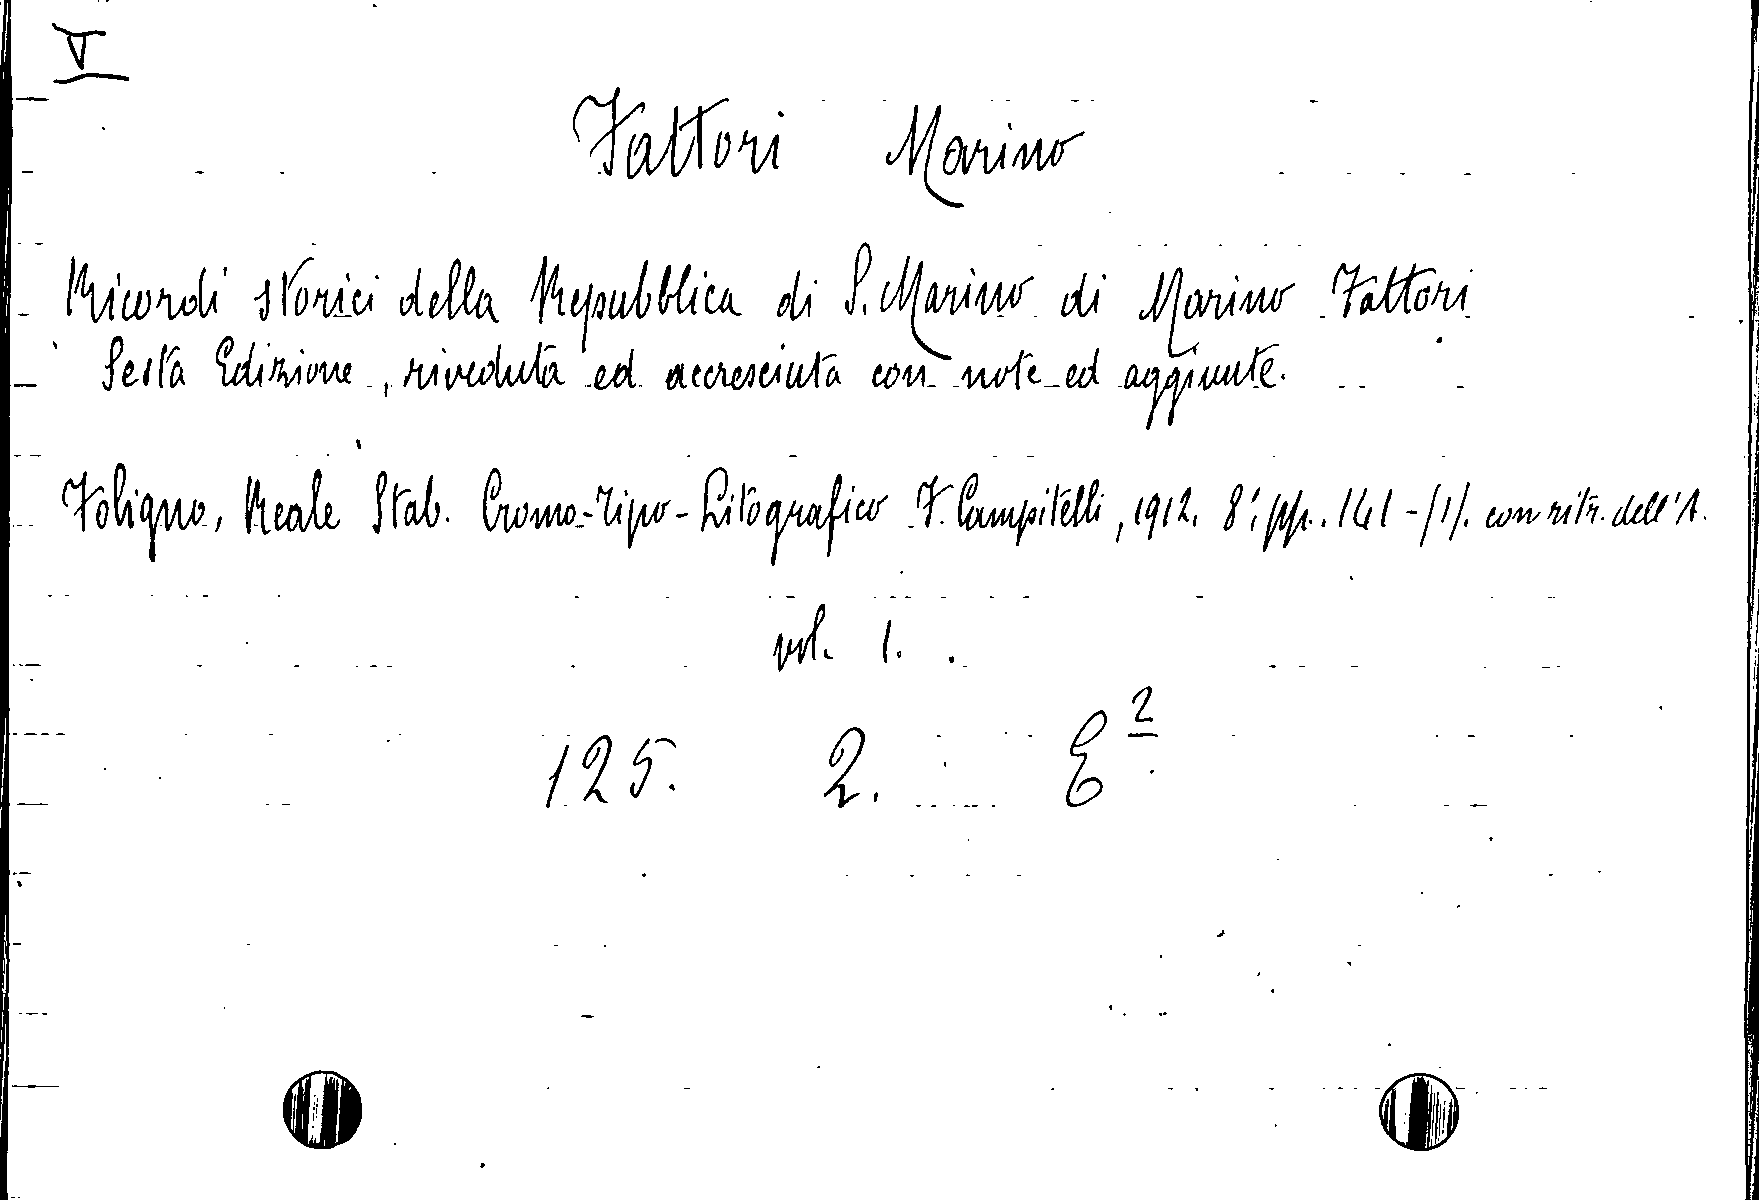 V
Fattori Marino
Ricordi storici della Repubblica di S. Marino di Marino Fattori
Sesta Edizione, riveduta ed accresciuta con note ed aggiunte.
Foligno, Reale Stab. Cromo-Tipo-Litografico F. Campitelli, 1912. 8°, pp. 141-(1). con ritr. dell'A.
vol. 1.
125. 2. E²